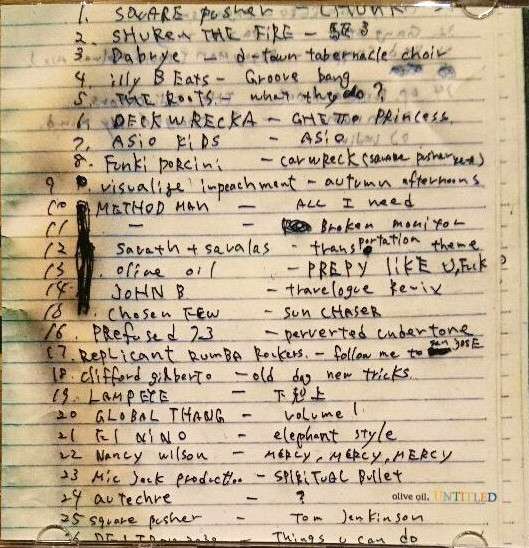 1. SQUARE pusher - CHUNK
2. SHUREN THE FIRE -
3. Dabrye - d-town tabernacle choir
4 illy B Eats - Groove bang
5 THE ROOTS - what they do?
6 DECKWRECKA - GHETTO Princess.
7. ASIO KIDS - ASIO
8. Funki porcini - carwreck (square pusher
9. visualize impeachment - autumn afternoons
10 METHOD MAN - ALL I need
11 - - Broken monitor
12 Savath + savalas - transportation theme
13 olive oil - PREPY LIKE U,FUCK
14 JOHN B - travelogue
15. Chosen FEW - SUN CHASER
16. PREfuse 73 - perverted undertone
17. Replicant Rumba Rockers. - follow me to San JOSE
18. Clifford gilberto - old dog new tricks
19. LAMPEYE - 下剋上
20 GLOBAL THANG - volume 1
21 El NINO - elephant style
22 Nancy wilson - MERCY, MERCY, MERCY
23 Mic Jack production - SPIRITUAL Bullet
24 autechre - ?
olive oil. UNTITLED
25 square pusher - Tom Jenkinson
26 - Things u can do